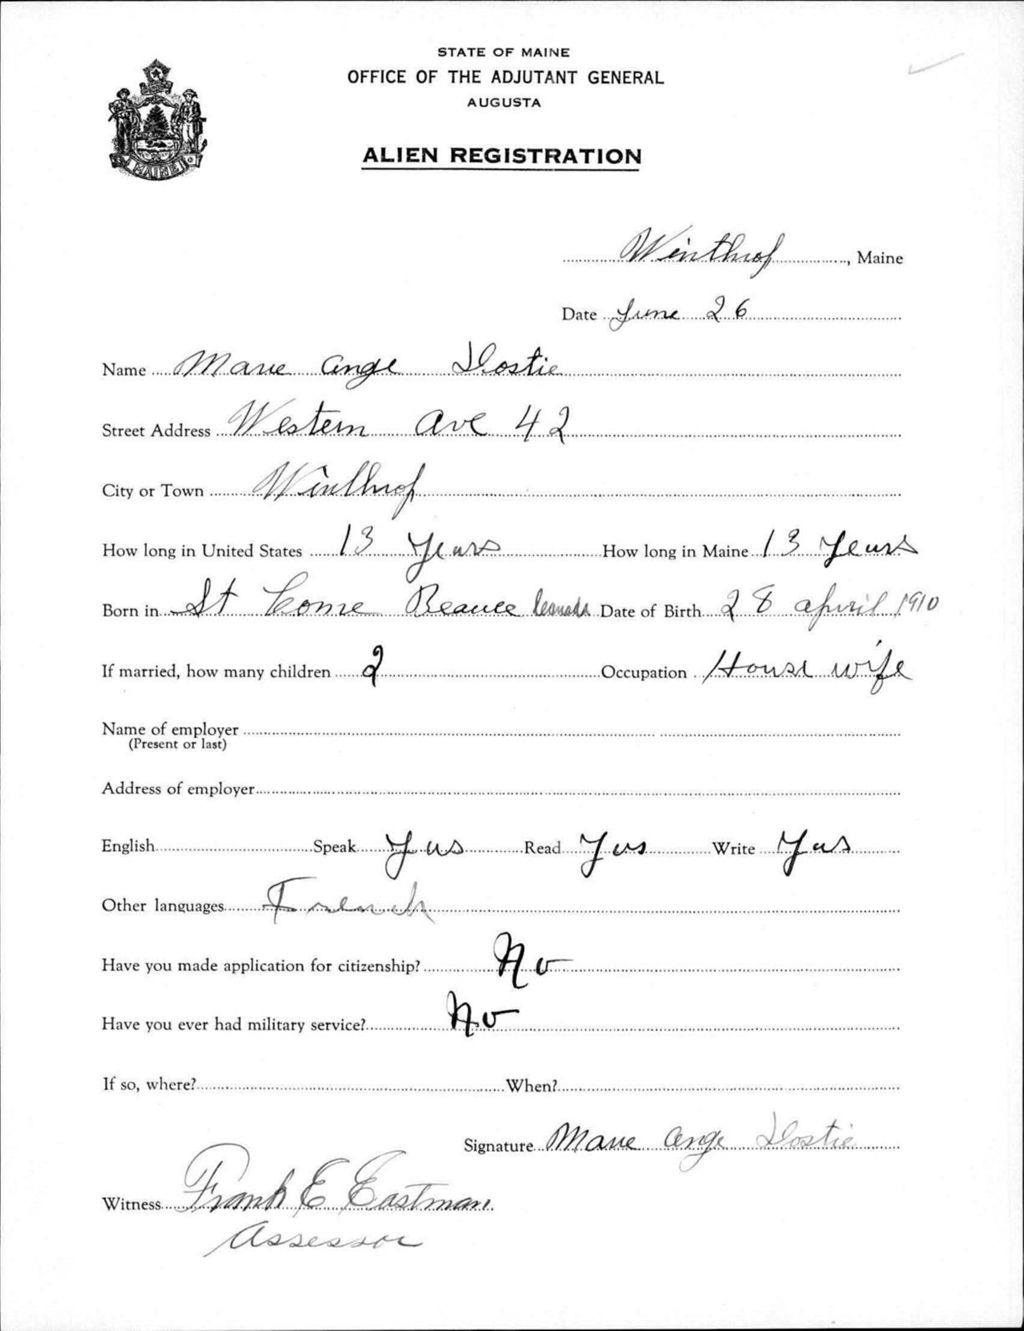 STATE OF MAINE
OFFICE OF THE ADJUTANT GENERAL
AUGUSTA
MAINE
ALIEN REGISTRATION
Winthrop, Maine
Date June 26
Name Marie Ange Dostie
Street Address Western Ave 42
City or Town Winthrop
How long in United States 13 Years How long in Maine 13 Years
Born in St Come Beauce Canada Date of Birth 28 april 1910
If married, how many children 2 Occupation House wife
Name of employer
(Present or last)
Address of employer
English Speak Yes Read Yes Write Yes
Other languages French
Have you made application for citizenship? No
Have you ever had military service? No
If so, where? When?
Signature Marie Ange Dostie
Witness Frank E Eastman
Assessor